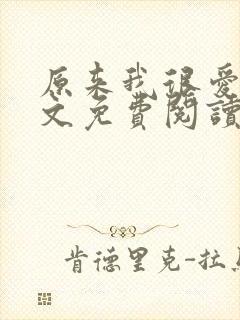 原来我很爱
文免費閱讀
肯德里克-拉